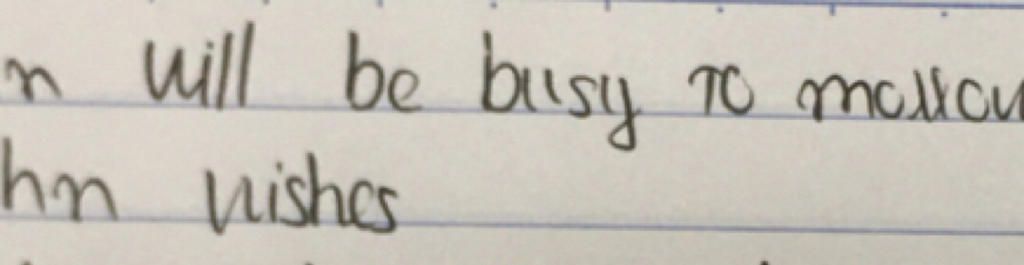 n will be busy to morrow
hn wishes